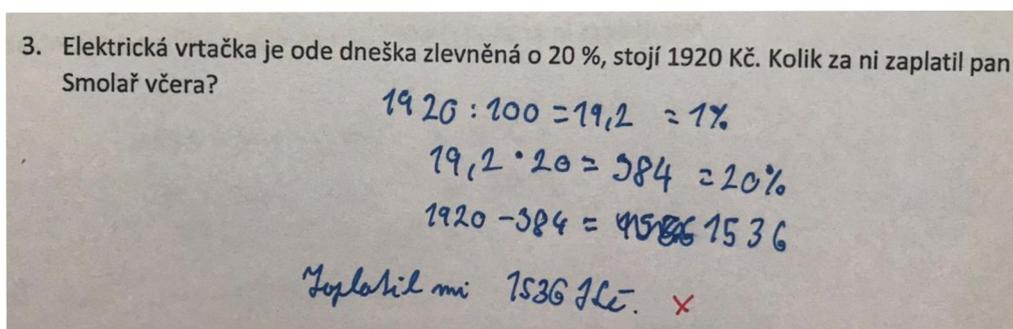 3. Elektrická vrtačka je ode dneška zlevněná o 20 %, stojí 1920 Kč. Kolik za ni zaplatil pan
Smolař včera?
1920 : 100 = 19,2 = 1%
19,2 · 20 = 384 = 20%
1920 - 384 = 1536
Zaplatil 1536 Kč. ×